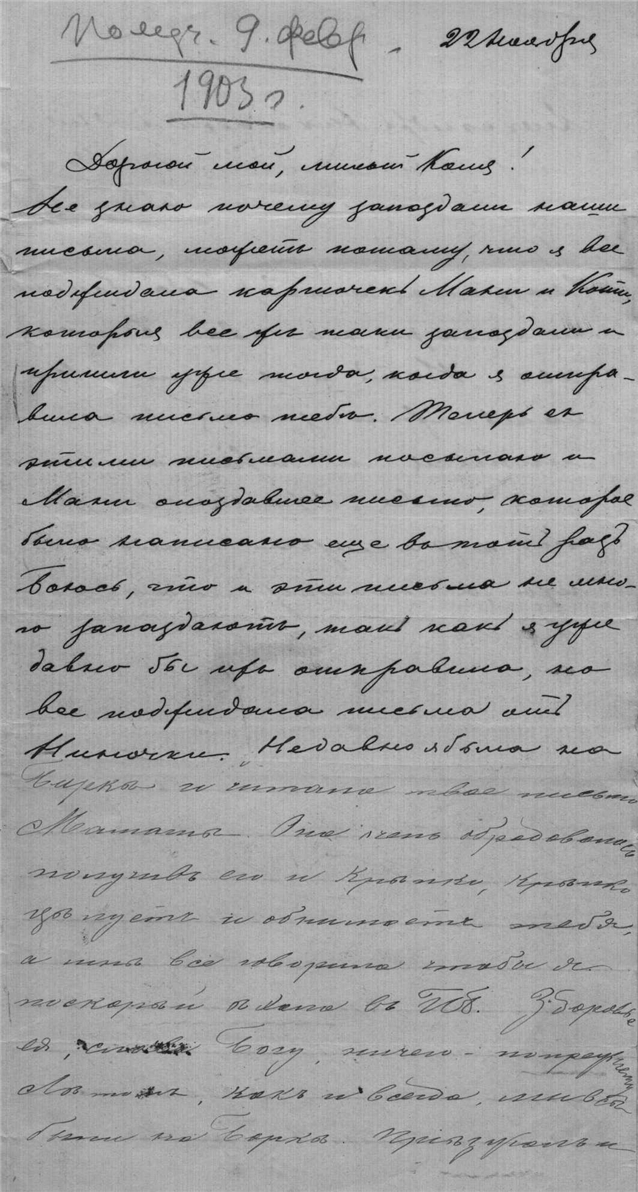 Получ. 9. февр.
22 ноября
1903 г.
Дорогой мой, милый Коля!
Не знаю почему запоздали наши
письма, можетъ потому, что я все
поджидала карточекъ Мани и Кати,
которыя все же таки запоздали и
пришли уже тогда, когда я отпра-
вила письмо тебѣ. Теперь съ
этими письмами посылаю и
Мани опоздавшее письмо, которое
было написано еще в тотъ разъ
Боюсь, что и эти письма не мно-
го запаздаютъ, такъ какъ я уже
давно бы ихъ отправила, но
все поджидала письма отъ
Ниночки. Недавно я была на
и читала твое письмо
Она очень обрадовалась
получивъ его и крѣпко, крѣпко
цѣлуетъ и обнимаетъ тебя,
а мнѣ все говорила чтобы я
поскорѣй ѣхала въ Здоровье
ея, слава Богу, ничего - попрежнему
Лѣтомъ, какъ и всегда, мы всѣ
были на